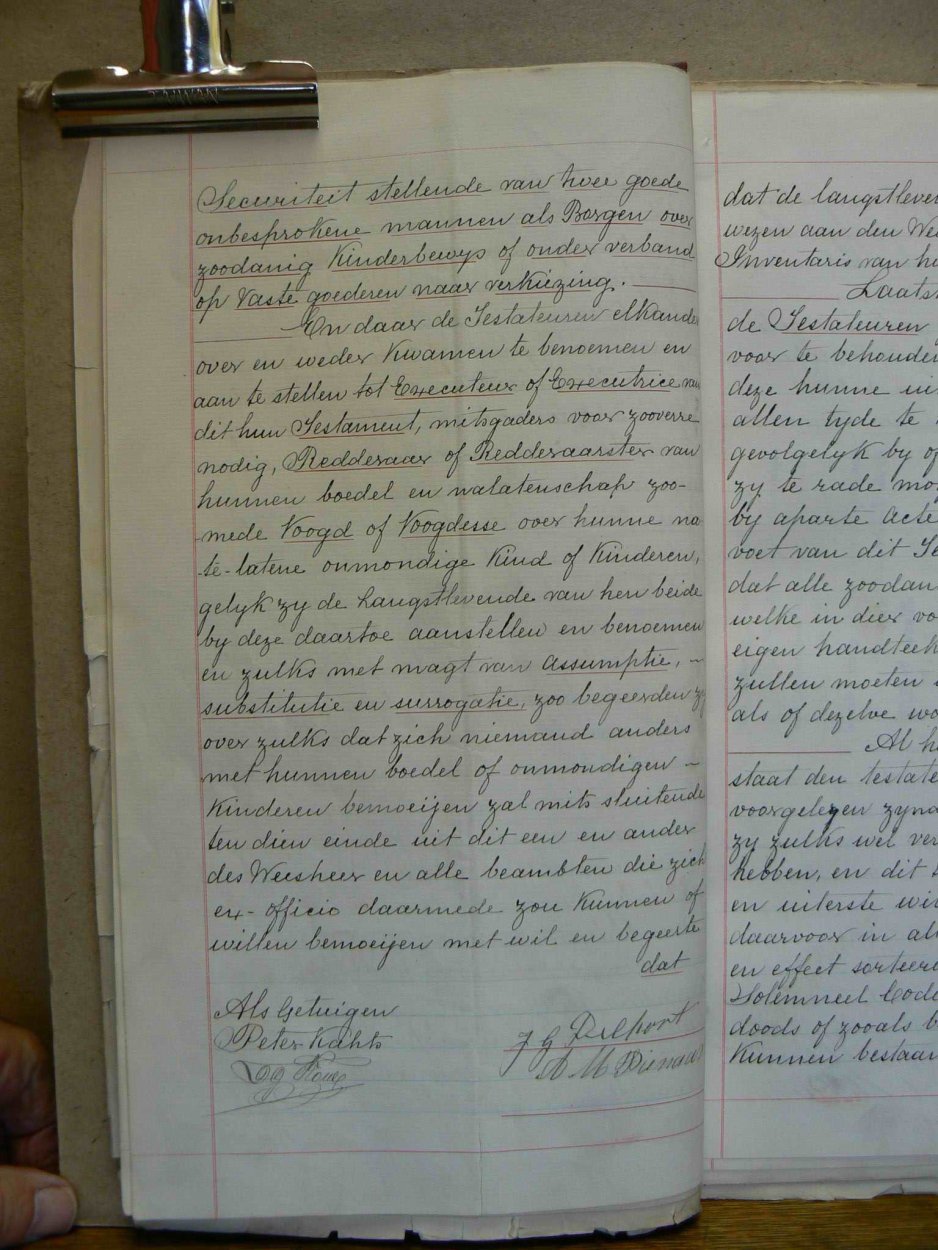 Securiteit stellende van twee goede
onbesprokene mannen als Borgen over
zoodanig Kinderbewys of onder verband
op Vaste goederen naar verkiezing.
En daar de Testateuren elkande
over en weder kwamen te benoemen en
aan te stellen tot Executeur of Executrice van
dit hun Testament, mitsgaders voor zooverre
nodig, Redderaar of Redderaarster van
hunnen boedel en nalatenschap zoo-
mede Voogd of Voogdesse over hunne na
te-latene onmondige Kind of Kinderen,
gelyk zy de Langstlevende van hen beide
by deze daartoe aanstellen en benoemen
en zulks met magt van assumptie,
substitutie en surrogatie, zoo begeerden zy
over zulks dat zich niemand anders
met hunnen boedel of onmondigen
Kinderen bemoeijen zal mits sluitende
ten dien einde uit dit een en ander
des Weesheer en alle beambten die zich
ex-officio daarmede zou kunnen of
willen bemoeijen met wil en begeerte
dat
Als Getuigen
Peter Kahts
J G Delport
A M Dienaar
dat de langstleven
wezen aan den Wee
Inventaris van hu
Laats
de Testateuren
voor te behouden
deze hunne ui
allen tyde te
gevolgelyk by of
zy te rade mo
by aparte Acte
voet van dit Te
dat alle zoodan
welke in dier vo
eigen handteek
zullen moeten
als of dezelve wo
Al h
staat den testate
voorgelezen zynd
zy zulks wel ver
hebben, en dit
en uiterste wi
daarvoor in al
en effect sorteere
Solemneel Code
doods of zooals b
Kunnen bestaan